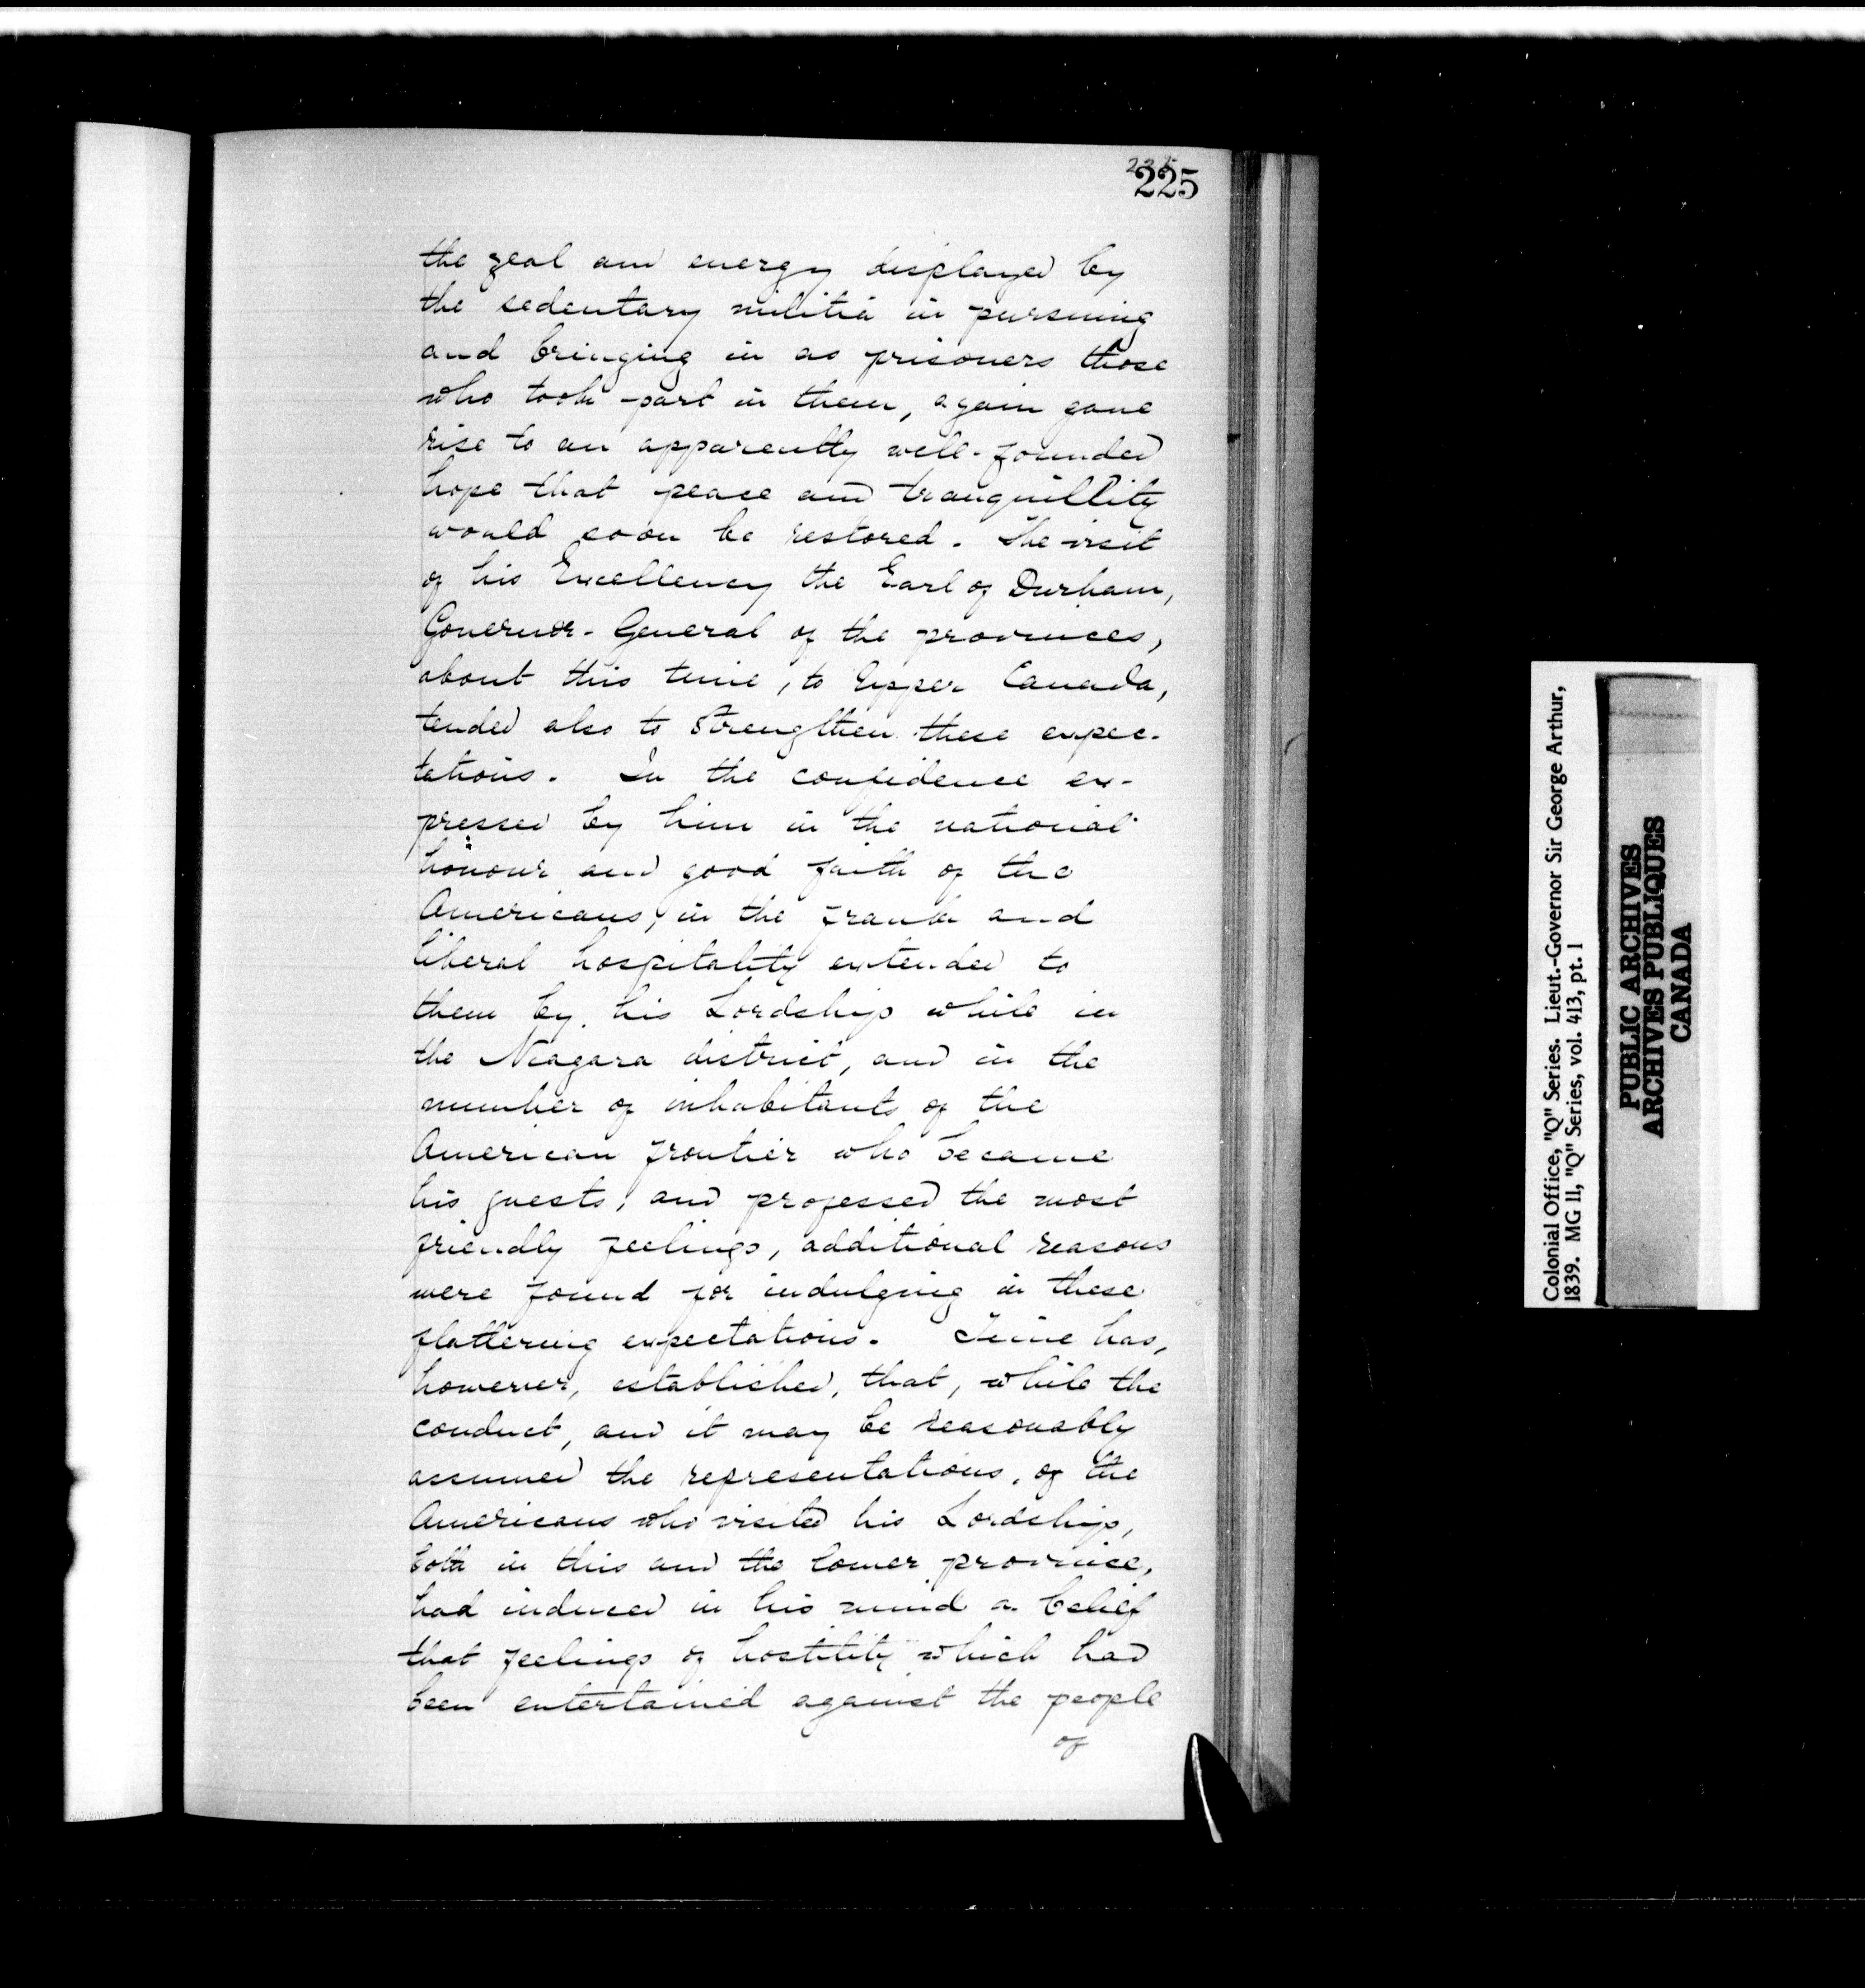 225
225
the zeal and energy displayed by
the sedentary militia in pursuing
and bringing in as prisoners those
who took part in them, again gave
rise to an apparently well-founded
hope that peace and tranquillity
would soon be restored. The visit
of his Excellency the Earl of Durham,
Governor-General of the provinces,
about this time, to Upper Canada,
tended also to strengthen these expec-
tations. In the confidence ex-
pressed by him in the national
honour and good faith of the
Americans, in the frank and
liberal hospitality extended to
them by his Lordship while in
the Niagara district, and in the
number of inhabitants of the
American frontier who became
his guests, and professed the most
friendly feelings, additional reasons
were found for indulging in these
flattering expectations. Time has,
however, established, that, while the
conduct, and it may be reasonably
assumed the representations, of the
Americans who visited his Lordship,
both in this and the lower province,
had induced in his mind a belief
that feelings of hostility which had
been entertained against the people
of
Colonial Office, "Q" Series. Lieut.-Governor Sir George Arthur,
1839. MG 11, "Q" Series, vol. 413, pt. 1
PUBLIC ARCHIVES
ARCHIVES PUBLIQUES
CANADA